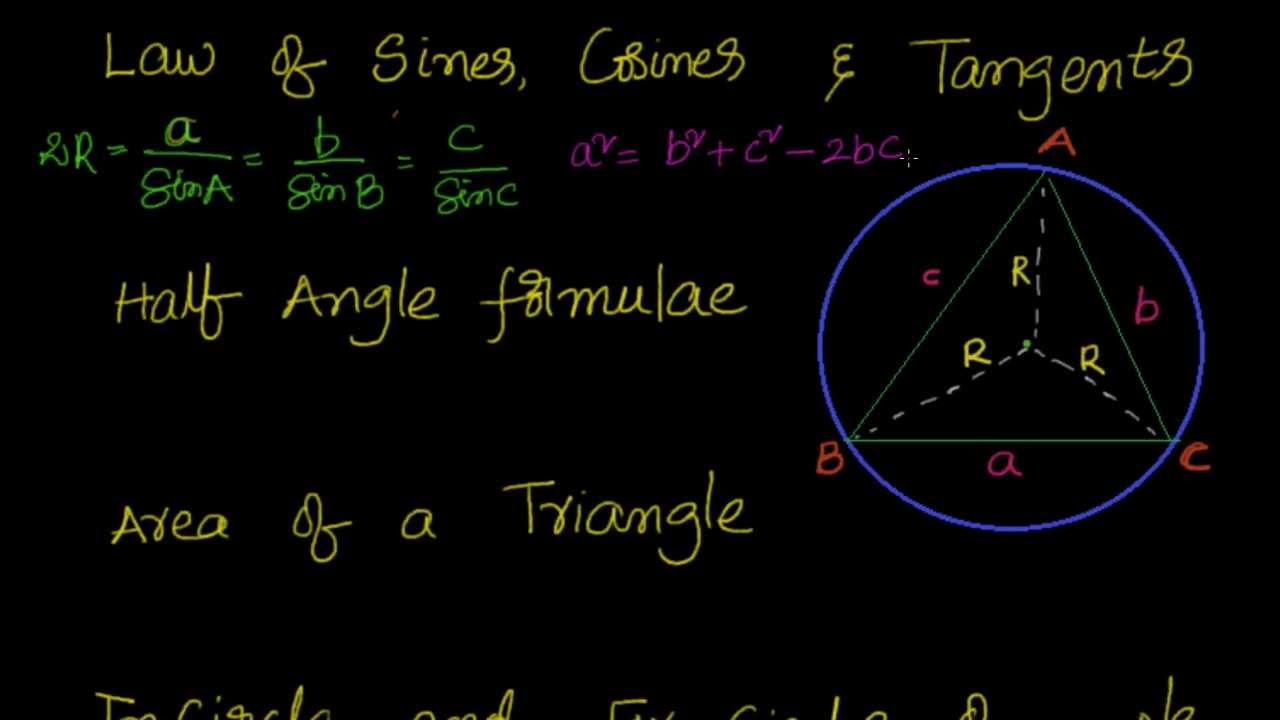 Law of Sines, Cosines & Tangents
2R = a/SinA = b/SinB = c/SinC
a² = b² + c² - 2bc
A
c
R
b
R
R
B
a
C
Half Angle formulae
Area of a Triangle
and